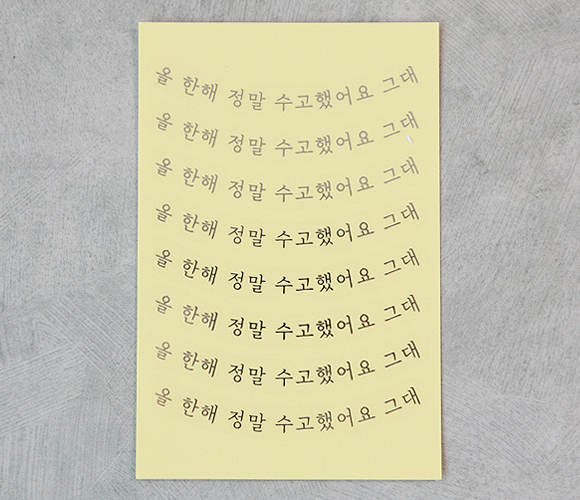 올 한해 정말 수고했어요 그대
올 한해 정말 수고했어요 그대
올 한해 정말 수고했어요 그대
올 한해 정말 수고했어요 그대
올 한해 정말 수고했어요 그대
올 한해 정말 수고했어요 그대
올 한해 정말 수고했어요 그대
올 한해 정말 수고했어요 그대